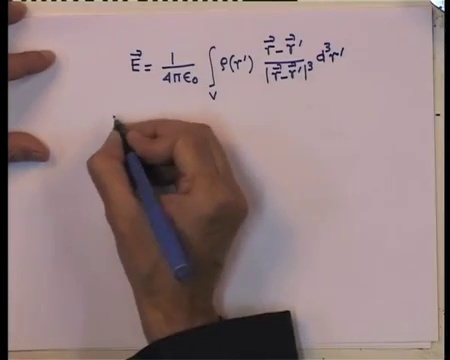 E⃗ = 1/4πϵ₀ ∫_V ρ(r') (r⃗ - r⃗')/|r⃗ - r⃗'|³ d³r'